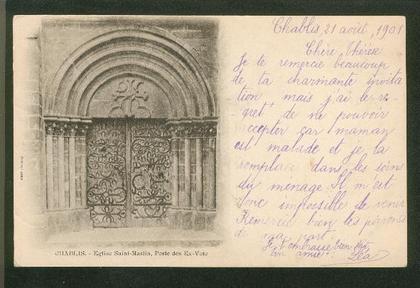 Chablis 21 août, 1901
Chère Thérèse
Je te remercie beaucoup
de ta charmante invita
tion mais j'ai le re-
gret de ne pouvoir
accepter car maman
est malade et je la
remplace dans les soins
du ménage Il m'est
donc impossible de venir
Remercie bien tes parents
de ma part
Je t'embrasse bien fort
ton amie
Léa
CHABLIS. - Eglise Saint-Martin, Porte des Ex-Voto